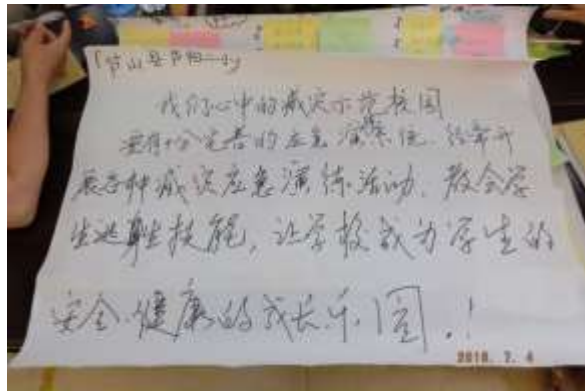 「芦山县芦阳一小」
我们心中的减灾示范校园
要有十分完善的应急演练系统，经常开
展各种减灾应急演练活动，教会学
生逃生技能，让学校成为学生的
安全、健康的成长乐园.！
2018. 7. 4